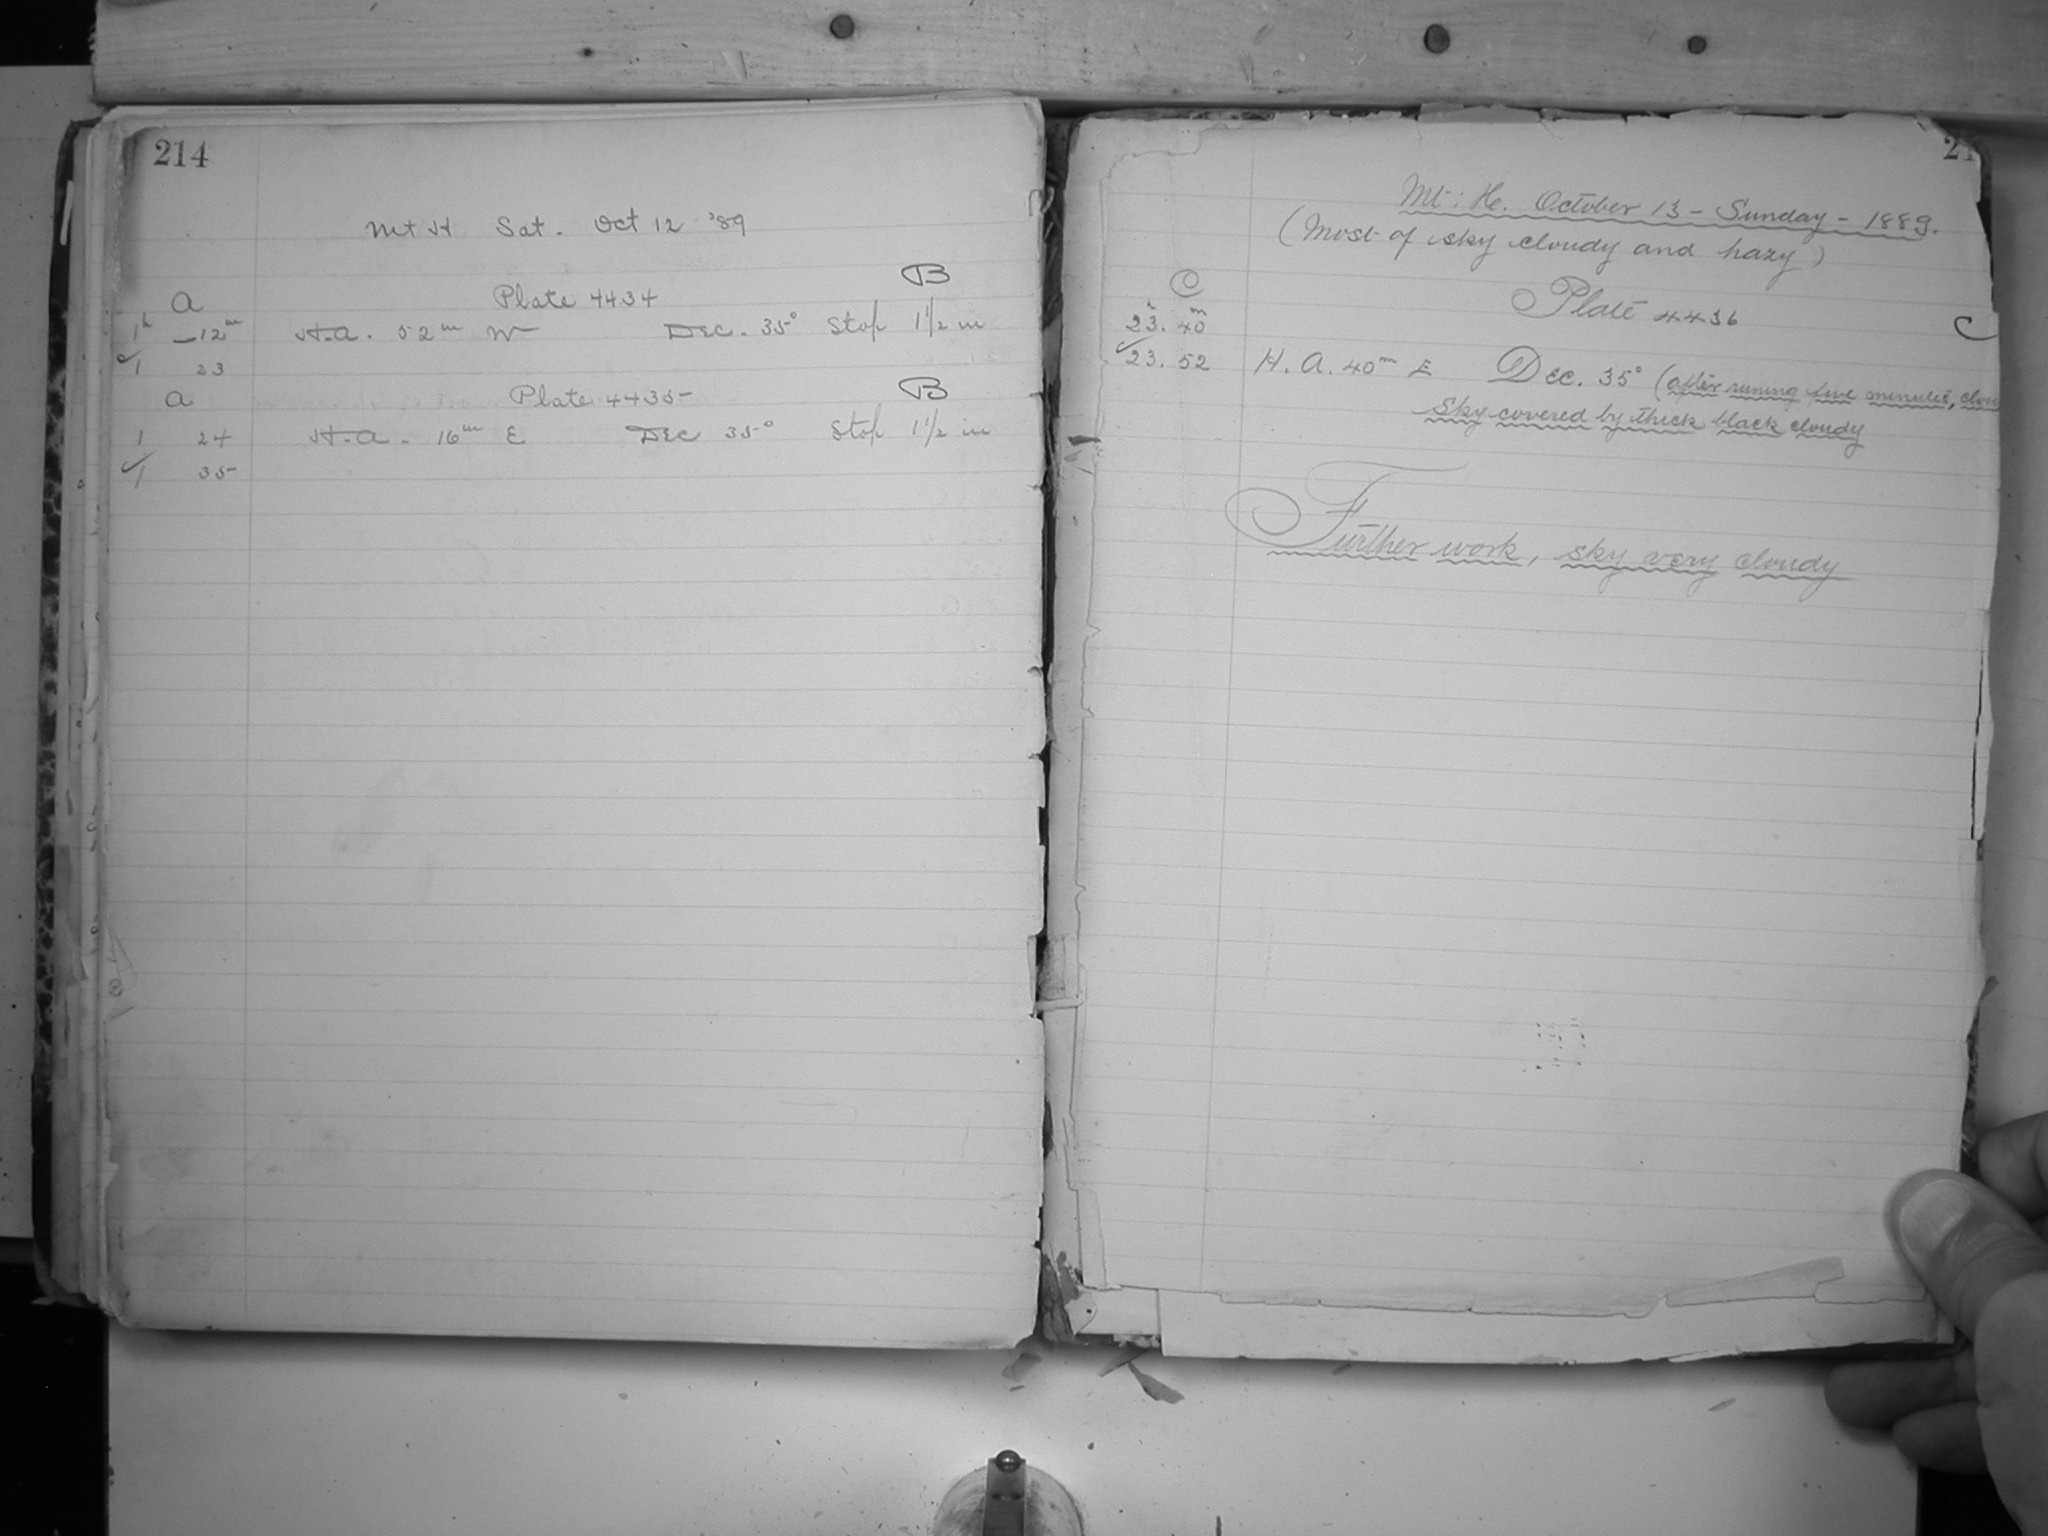 214
Mt H Sat. Oct 12 '89
a Plate 4434 B
1h 12m H.A. 52m W Dec. 35° Stop 1 1/2 in
✓1 23
a Plate 4435 B
1 24 H.A. 16m E Dec 35° Stop 1 1/2 in
✓1 35
21
Mt. H. October 13 - Sunday - 1889.
(Most of sky cloudy and hazy)
C Plate 4436 C
23h. 40m
✓23. 52 H. A. 40m E Dec. 35° (after runing five minutes,
Sky covered by thick black cloudy
Further work, sky very cloudy